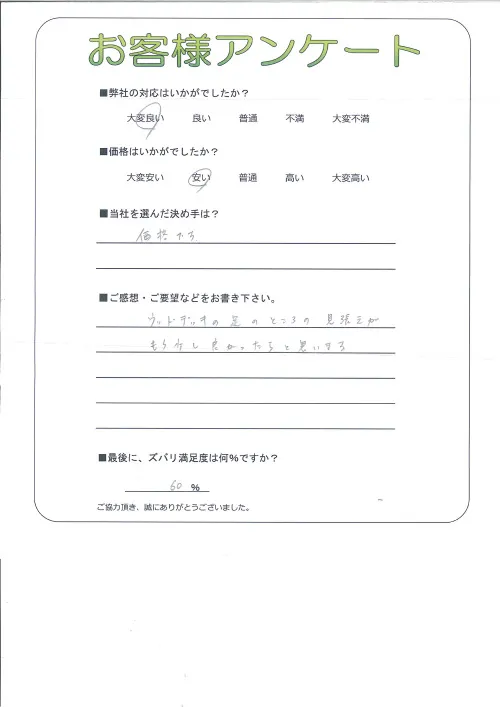 お客様アンケート
■弊社の対応はいかがでしたか？
大変良い 良い 普通 不満 大変不満
■価格はいかがでしたか？
大変安い 安い 普通 高い 大変高い
■当社を選んだ決め手は？
価格です
■ご感想・ご要望などをお書き下さい。
ウッドデッキの足のところの見張えが
もう少し良かったらと思いまする
■最後に、ズバリ満足度は何％ですか？
60 ％
ご協力頂き、誠にありがとうございました。